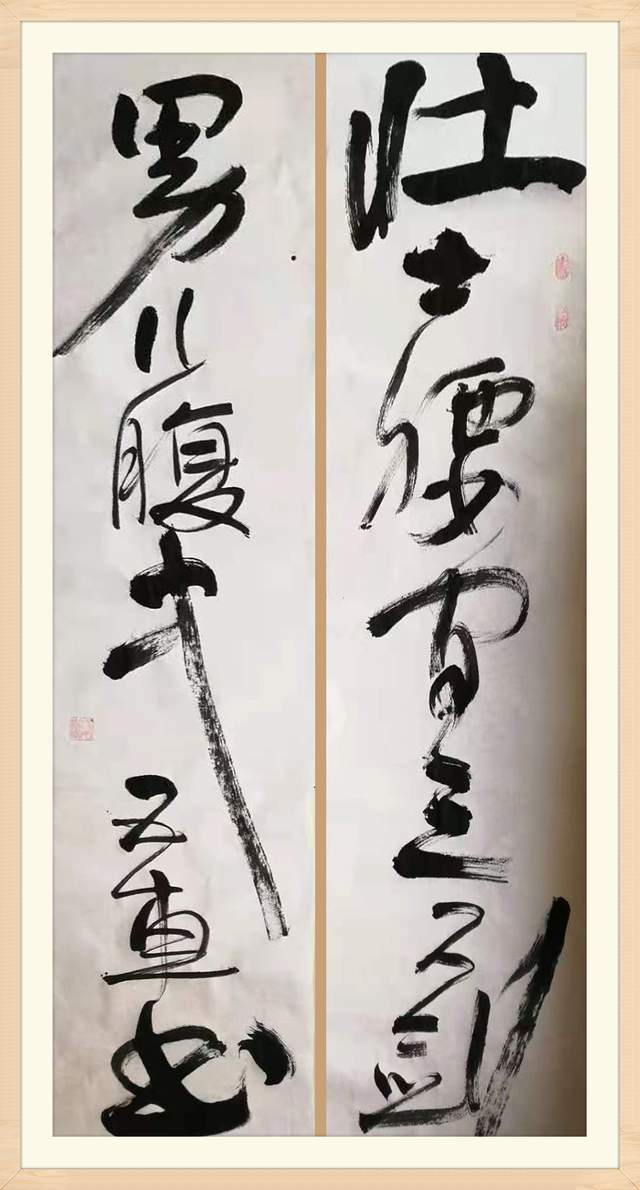 壮士腰间三尺剑
男儿腹中五车书